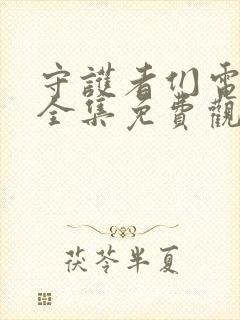 守護者们電
全集免費觀
茯苓半夏